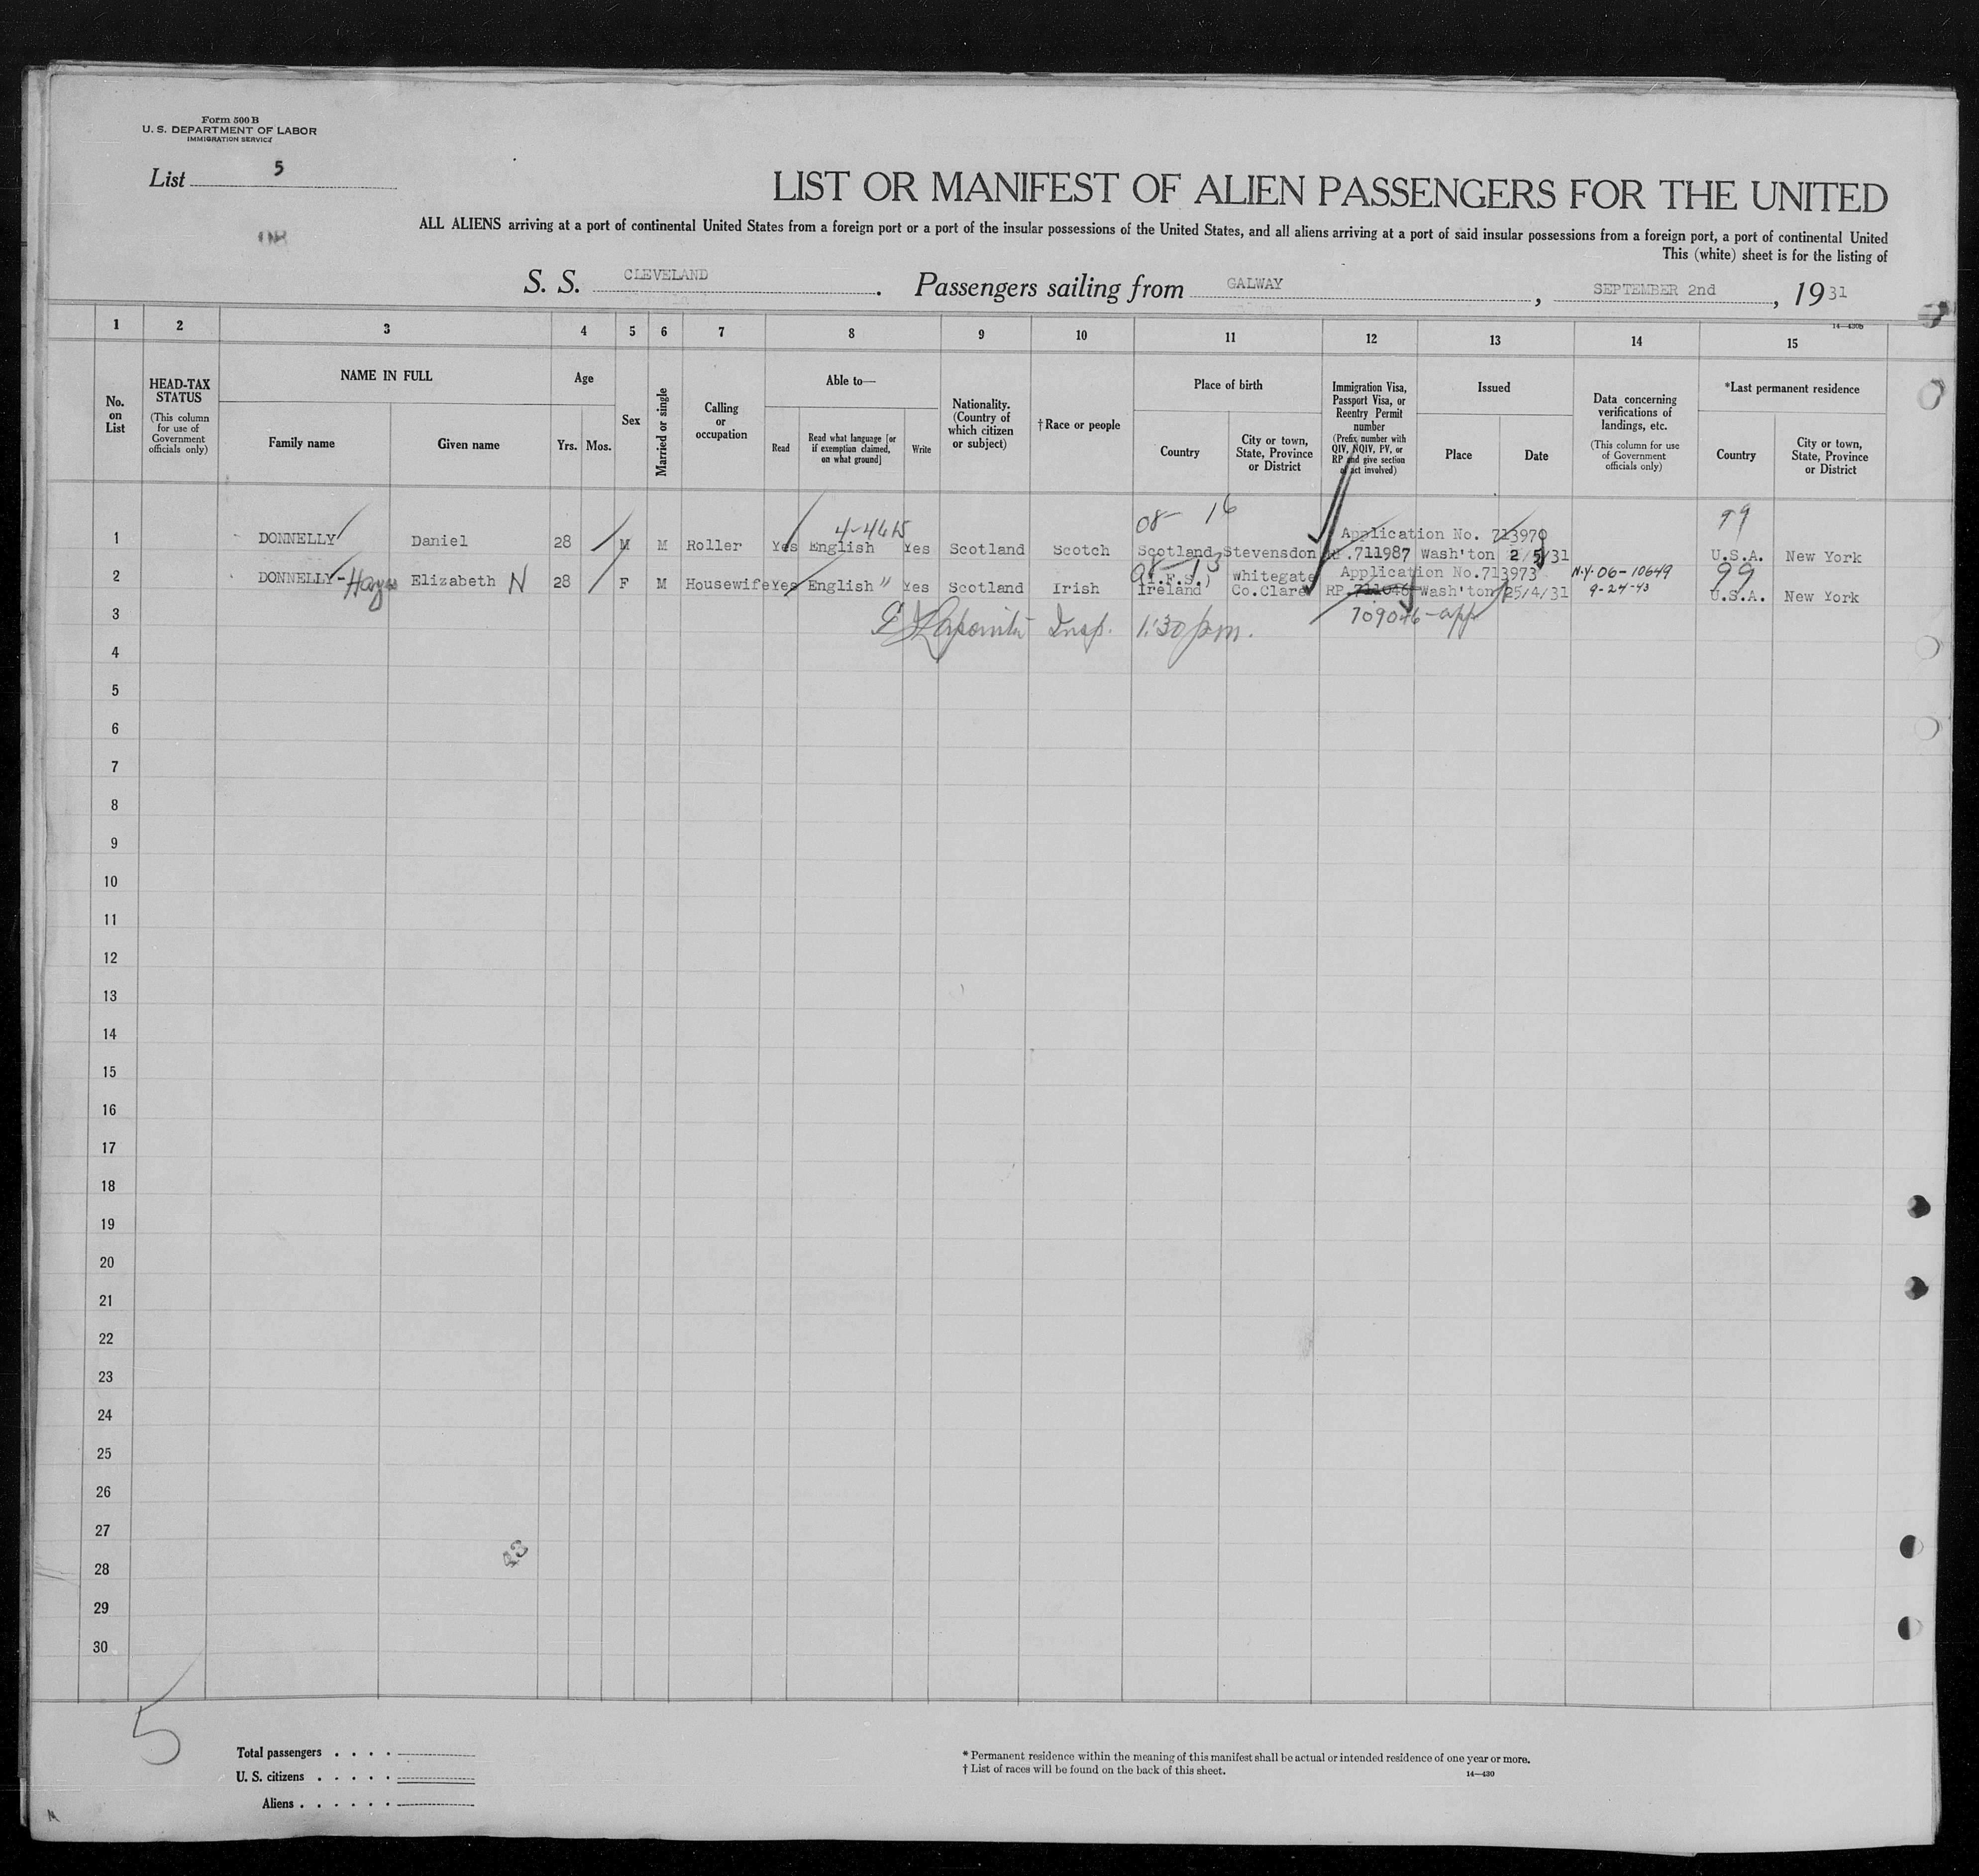 Form 500 B
U. S. DEPARTMENT OF LABOR
IMMIGRATION SERVICE
List 5
LIST OR MANIFEST OF ALIEN PASSENGERS FOR THE UNITED
ALL ALIENS arriving at a port of continental United States from a foreign port or a port of the insular possessions of the United States, and all aliens arriving at a port of said insular possessions from a foreign port, a port of continental United
This (white) sheet is for the listing of
S. S. CLEVELAND. Passengers sailing from GALWAY, SEPTEMBER 2nd, 1931
14—430b
1 2 3 4 5 6 7 8 9 10 11 12 13 14 15
No. on List
HEAD-TAX STATUS
(This column for use of Government officials only)
NAME IN FULL
Family name
Given name
Age
Yrs.
Mos.
Sex
Married or single
Calling or occupation
Able to—
Read
Read what language [or if exemption claimed, on what ground]
Write
Nationality. (Country of which citizen or subject)
†Race or people
Place of birth
Country
City or town, State, Province or District
Immigration Visa, Passport Visa, or Reentry Permit number
(Prefix number with QIV, NQIV, PV, or RP and give section of act involved)
Issued
Place
Date
Data concerning verifications of landings, etc.
(This column for use of Government officials only)
*Last permanent residence
Country
City or town, State, Province or District
08- 16 99
4-4615 Application No. 713970
1 DONNELLY Daniel 28 M M Roller Yes English Yes Scotland Scotch Scotland Stevensdon RP.711987 Wash'ton 2/5/31 U.S.A. New York
08-13 (I.F.S.) Whitegate Application No.713973 N.Y. 06-10649 99
2 DONNELLY-Hayes Elizabeth N 28 F M Housewife Yes English " Yes Scotland Irish Ireland Co.Clare RP 711046 Wash'ton 25/4/31 9-24-43 U.S.A. New York
3 Insp. 1:30 pm. 709046-app
4
5
6
7
8
9
10
11
12
13
14
15
16
17
18
19
20
21
22
23
24
25
26
27
28
29
30
43
5
Total passengers . . . .
U. S. citizens . . . . .
Aliens . . . . . .
* Permanent residence within the meaning of this manifest shall be actual or intended residence of one year or more.
† List of races will be found on the back of this sheet.
14—430